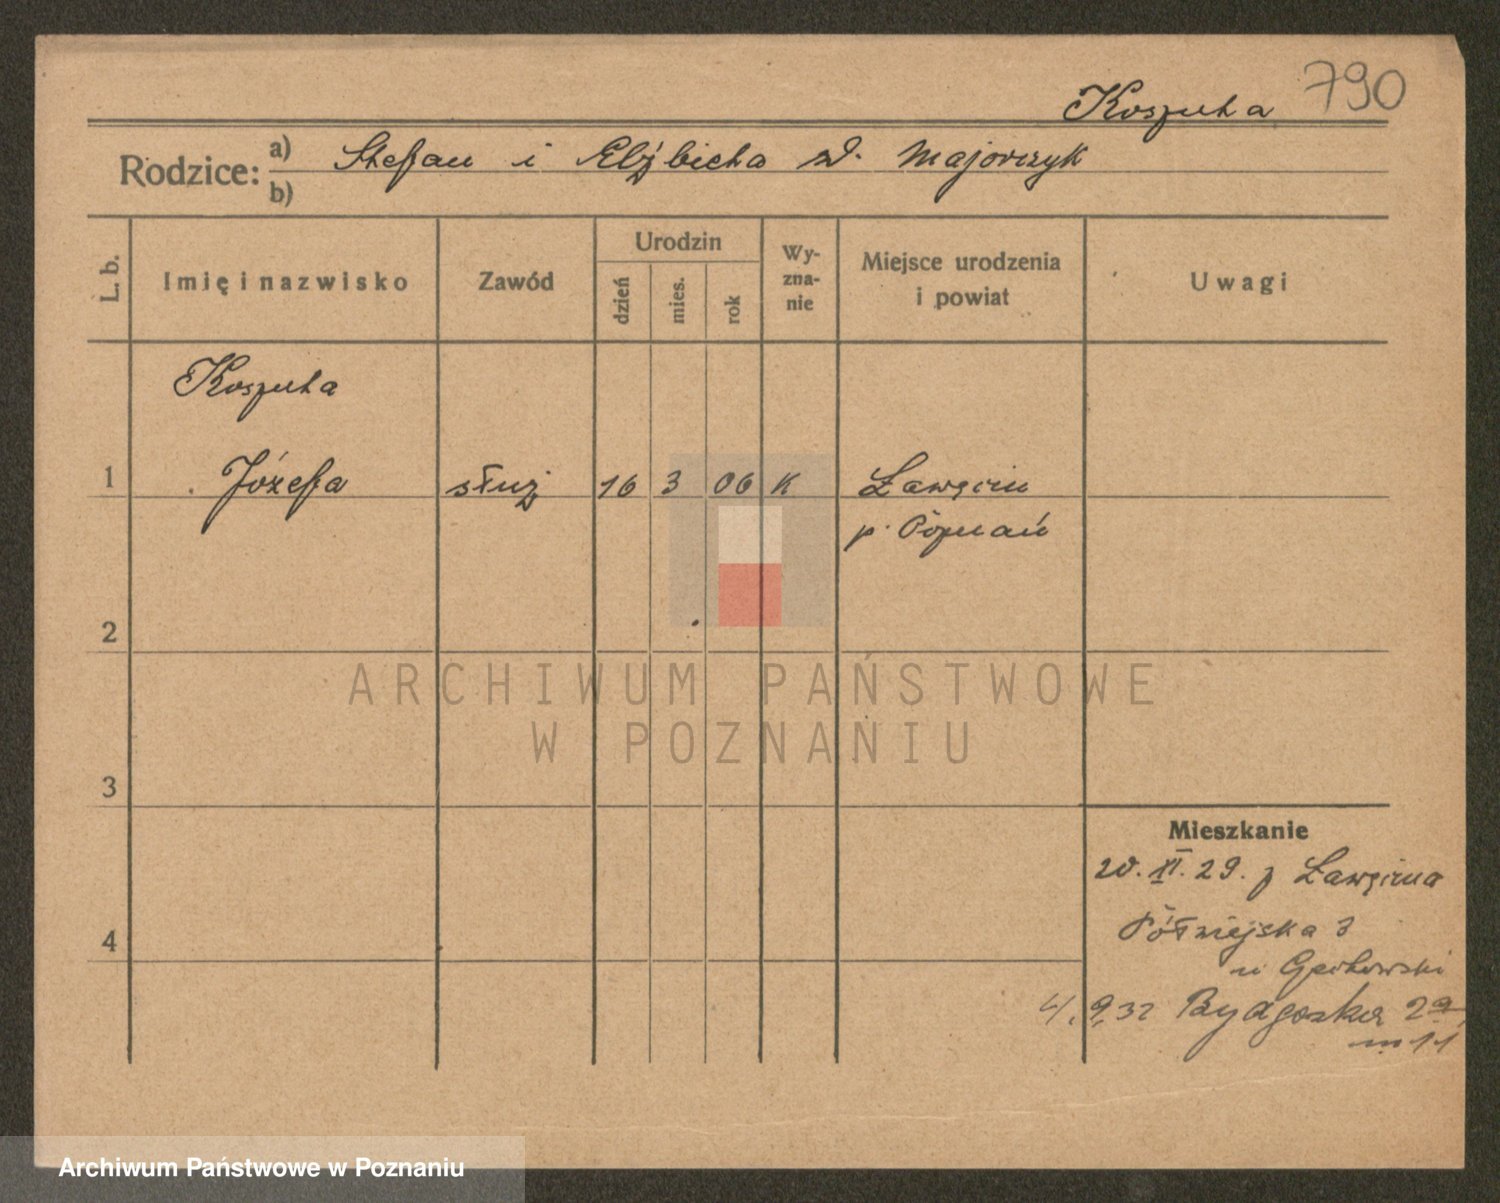 790
Koszuta
Rodzice: a) Stefan i Elżbieta zd. Majorczyk
b)
L. b.
Imię i nazwisko
Zawód
Urodzin
dzień
mies.
rok
Wy-
zna-
nie
Miejsce urodzenia
i powiat
Uwagi
Koszuta
1 Józefa służ 16 3 06 K Ławęcin
p. Poznań
2
ARCHIWUM PAŃSTWOWE
W POZNANIU
3
Mieszkanie
20. XI. 29. z Ławęcina
4
Półwiejska 3
u
4. 9. 32 Bydgoska 2a
m 11
Archiwum Państwowe w Poznaniu